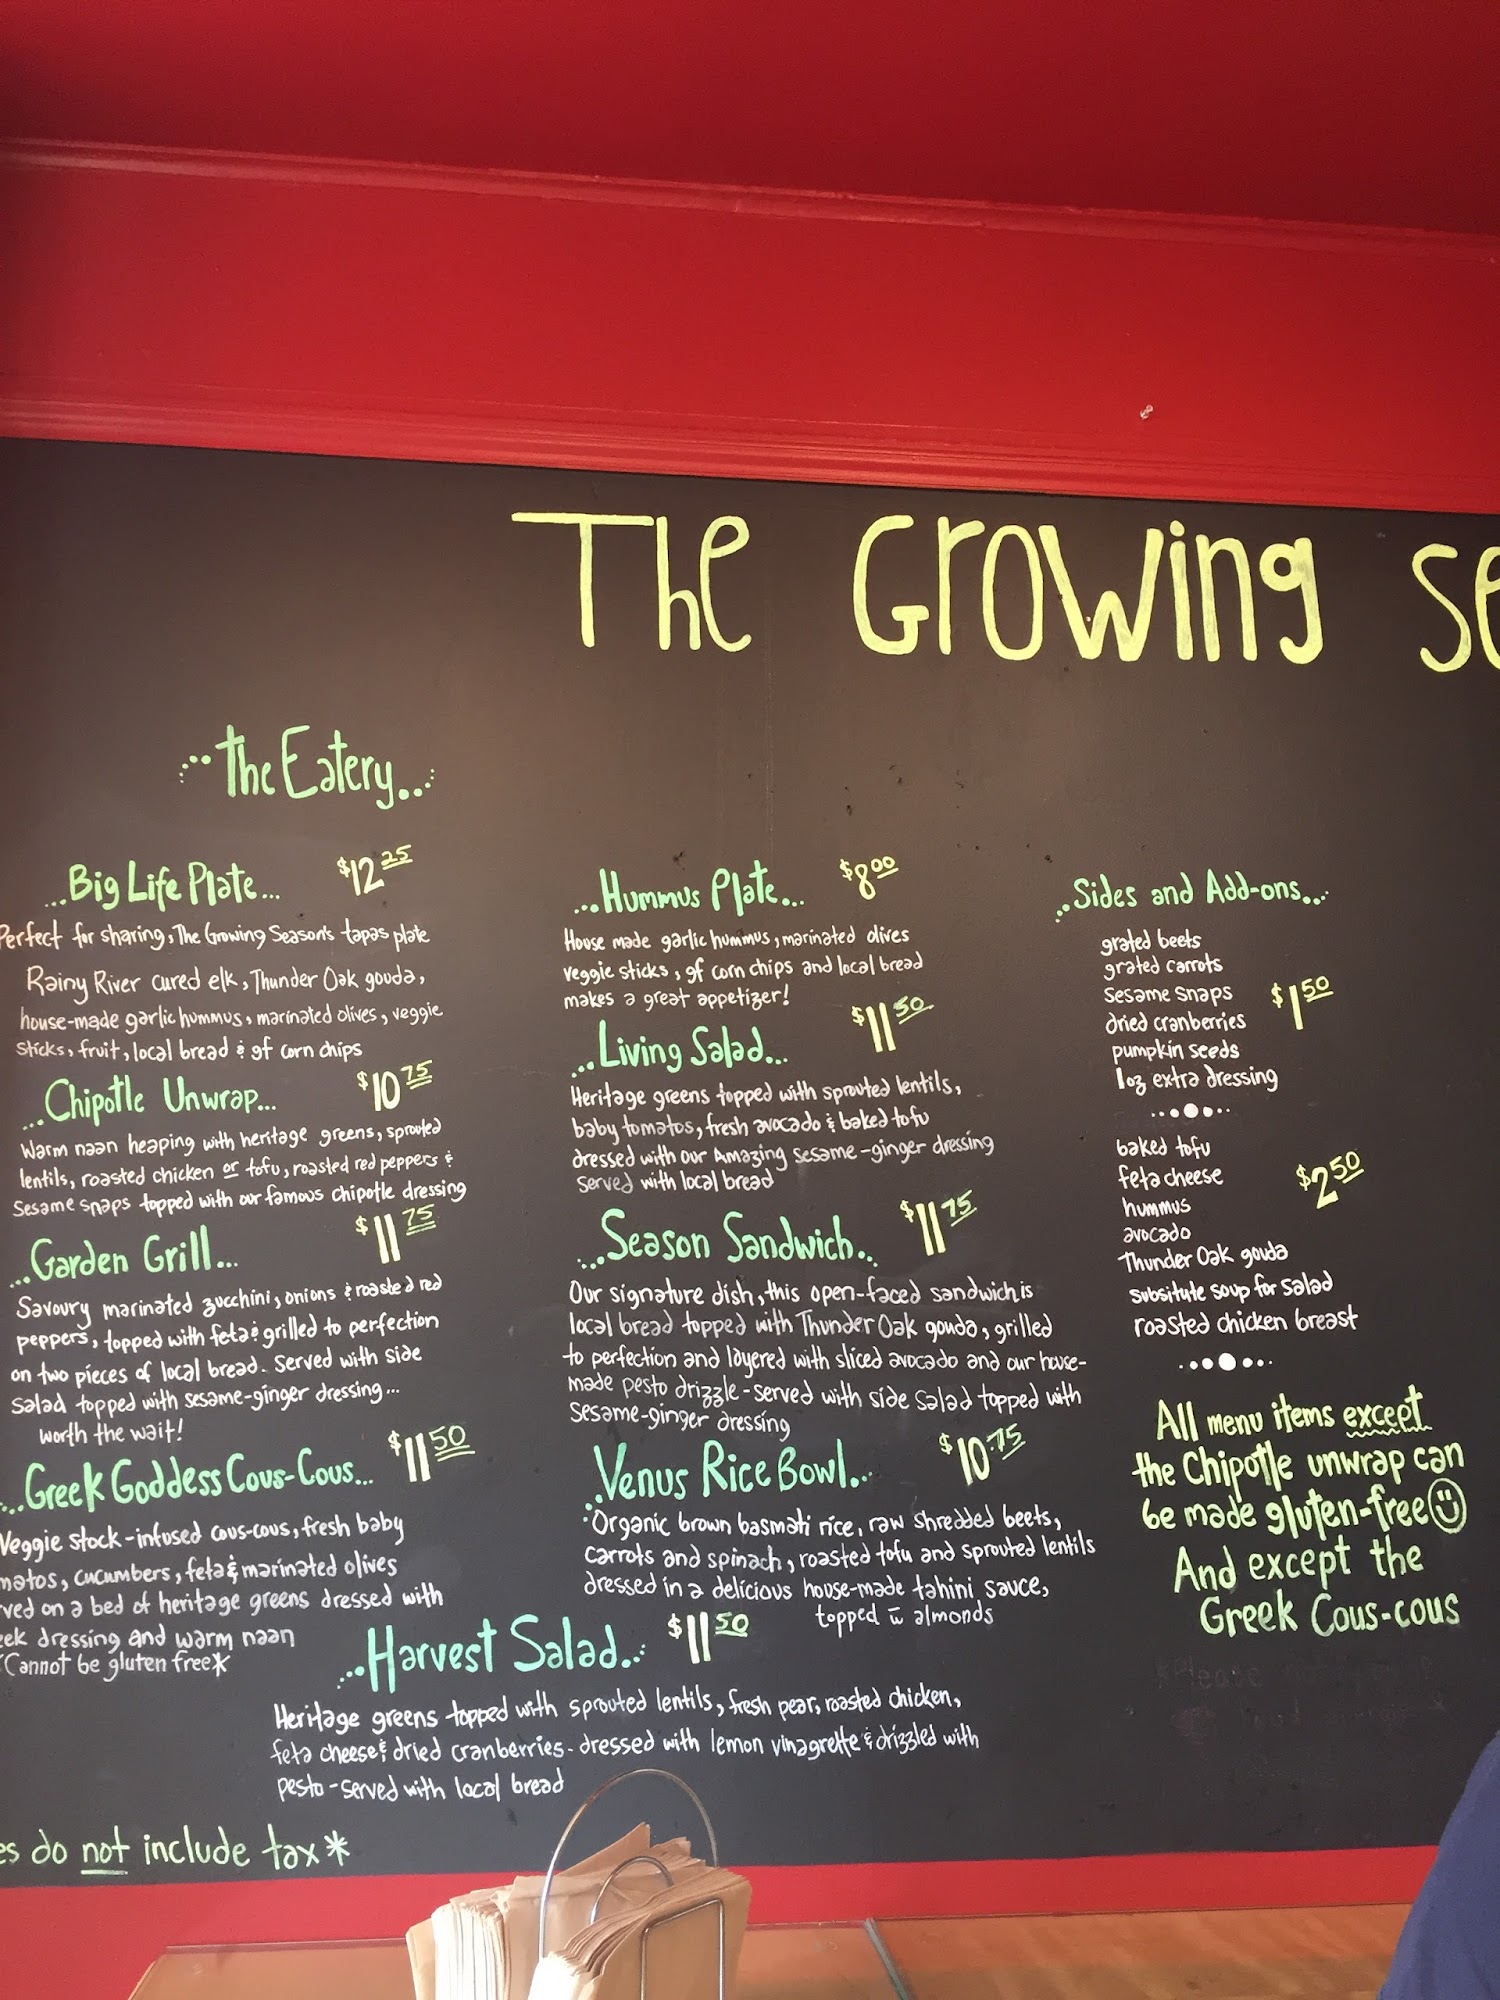 The Growing Se
The Eatery...
...Big Life Plate... $12.25
Perfect for sharing, The Growing Season's tapas plate
Rainy River cured elk, Thunder Oak gouda,
house-made garlic hummus, marinated olives, veggie
sticks, fruit, local bread & gf corn chips
...Chipotle Unwrap... $10.75
Warm naan heaping with heritage greens, sprouted
lentils, roasted chicken or tofu, roasted red peppers &
sesame snaps topped with our famous chipotle dressing
...Garden Grill... $11.75
Savoury marinated zucchini, onions & roasted red
peppers, topped with feta & grilled to perfection
on two pieces of local bread. Served with side
salad topped with sesame-ginger dressing...
worth the wait!
...Greek Goddess Cous-Cous... $11.50
Veggie stock-infused cous-cous, fresh baby
matos, cucumbers, feta & marinated olives
ved on a bed of heritage greens dressed with
eek dressing and warm naan
*Cannot be gluten free*
...Hummus Plate... $8.00
House made garlic hummus, marinated olives
veggie sticks, gf corn chips and local bread
makes a great appetizer!
...Living Salad... $11.50
Heritage greens topped with sprouted lentils,
baby tomatos, fresh avocado & baked tofu
dressed with our Amazing sesame-ginger dressing
served with local bread
...Season Sandwich... $11.75
Our signature dish, this open-faced sandwich is
local bread topped with Thunder Oak gouda, grilled
to perfection and layered with sliced avocado and our house-
made pesto drizzle - served with side salad topped with
sesame-ginger dressing
...Venus Rice Bowl... $10.75
Organic brown basmati rice, raw shredded beets,
carrots and spinach, roasted tofu and sprouted lentils
dressed in a delicious house-made tahini sauce,
topped w almonds
...Harvest Salad... $11.50
Heritage greens topped with sprouted lentils, fresh pear, roasted chicken,
feta cheese & dried cranberries - dressed with lemon vinagrette & drizzled with
pesto - served with local bread
...Sides and Add-ons...
grated beets
grated carrots
sesame snaps $1.50
dried cranberries
pumpkin seeds
1oz extra dressing
baked tofu
feta cheese $2.50
hummus
avocado
Thunder Oak gouda
subsitute soup for salad
roasted chicken breast
All menu items except
the Chipotle unwrap can
be made gluten-free
And except the
Greek Cous-cous
es do not include tax*